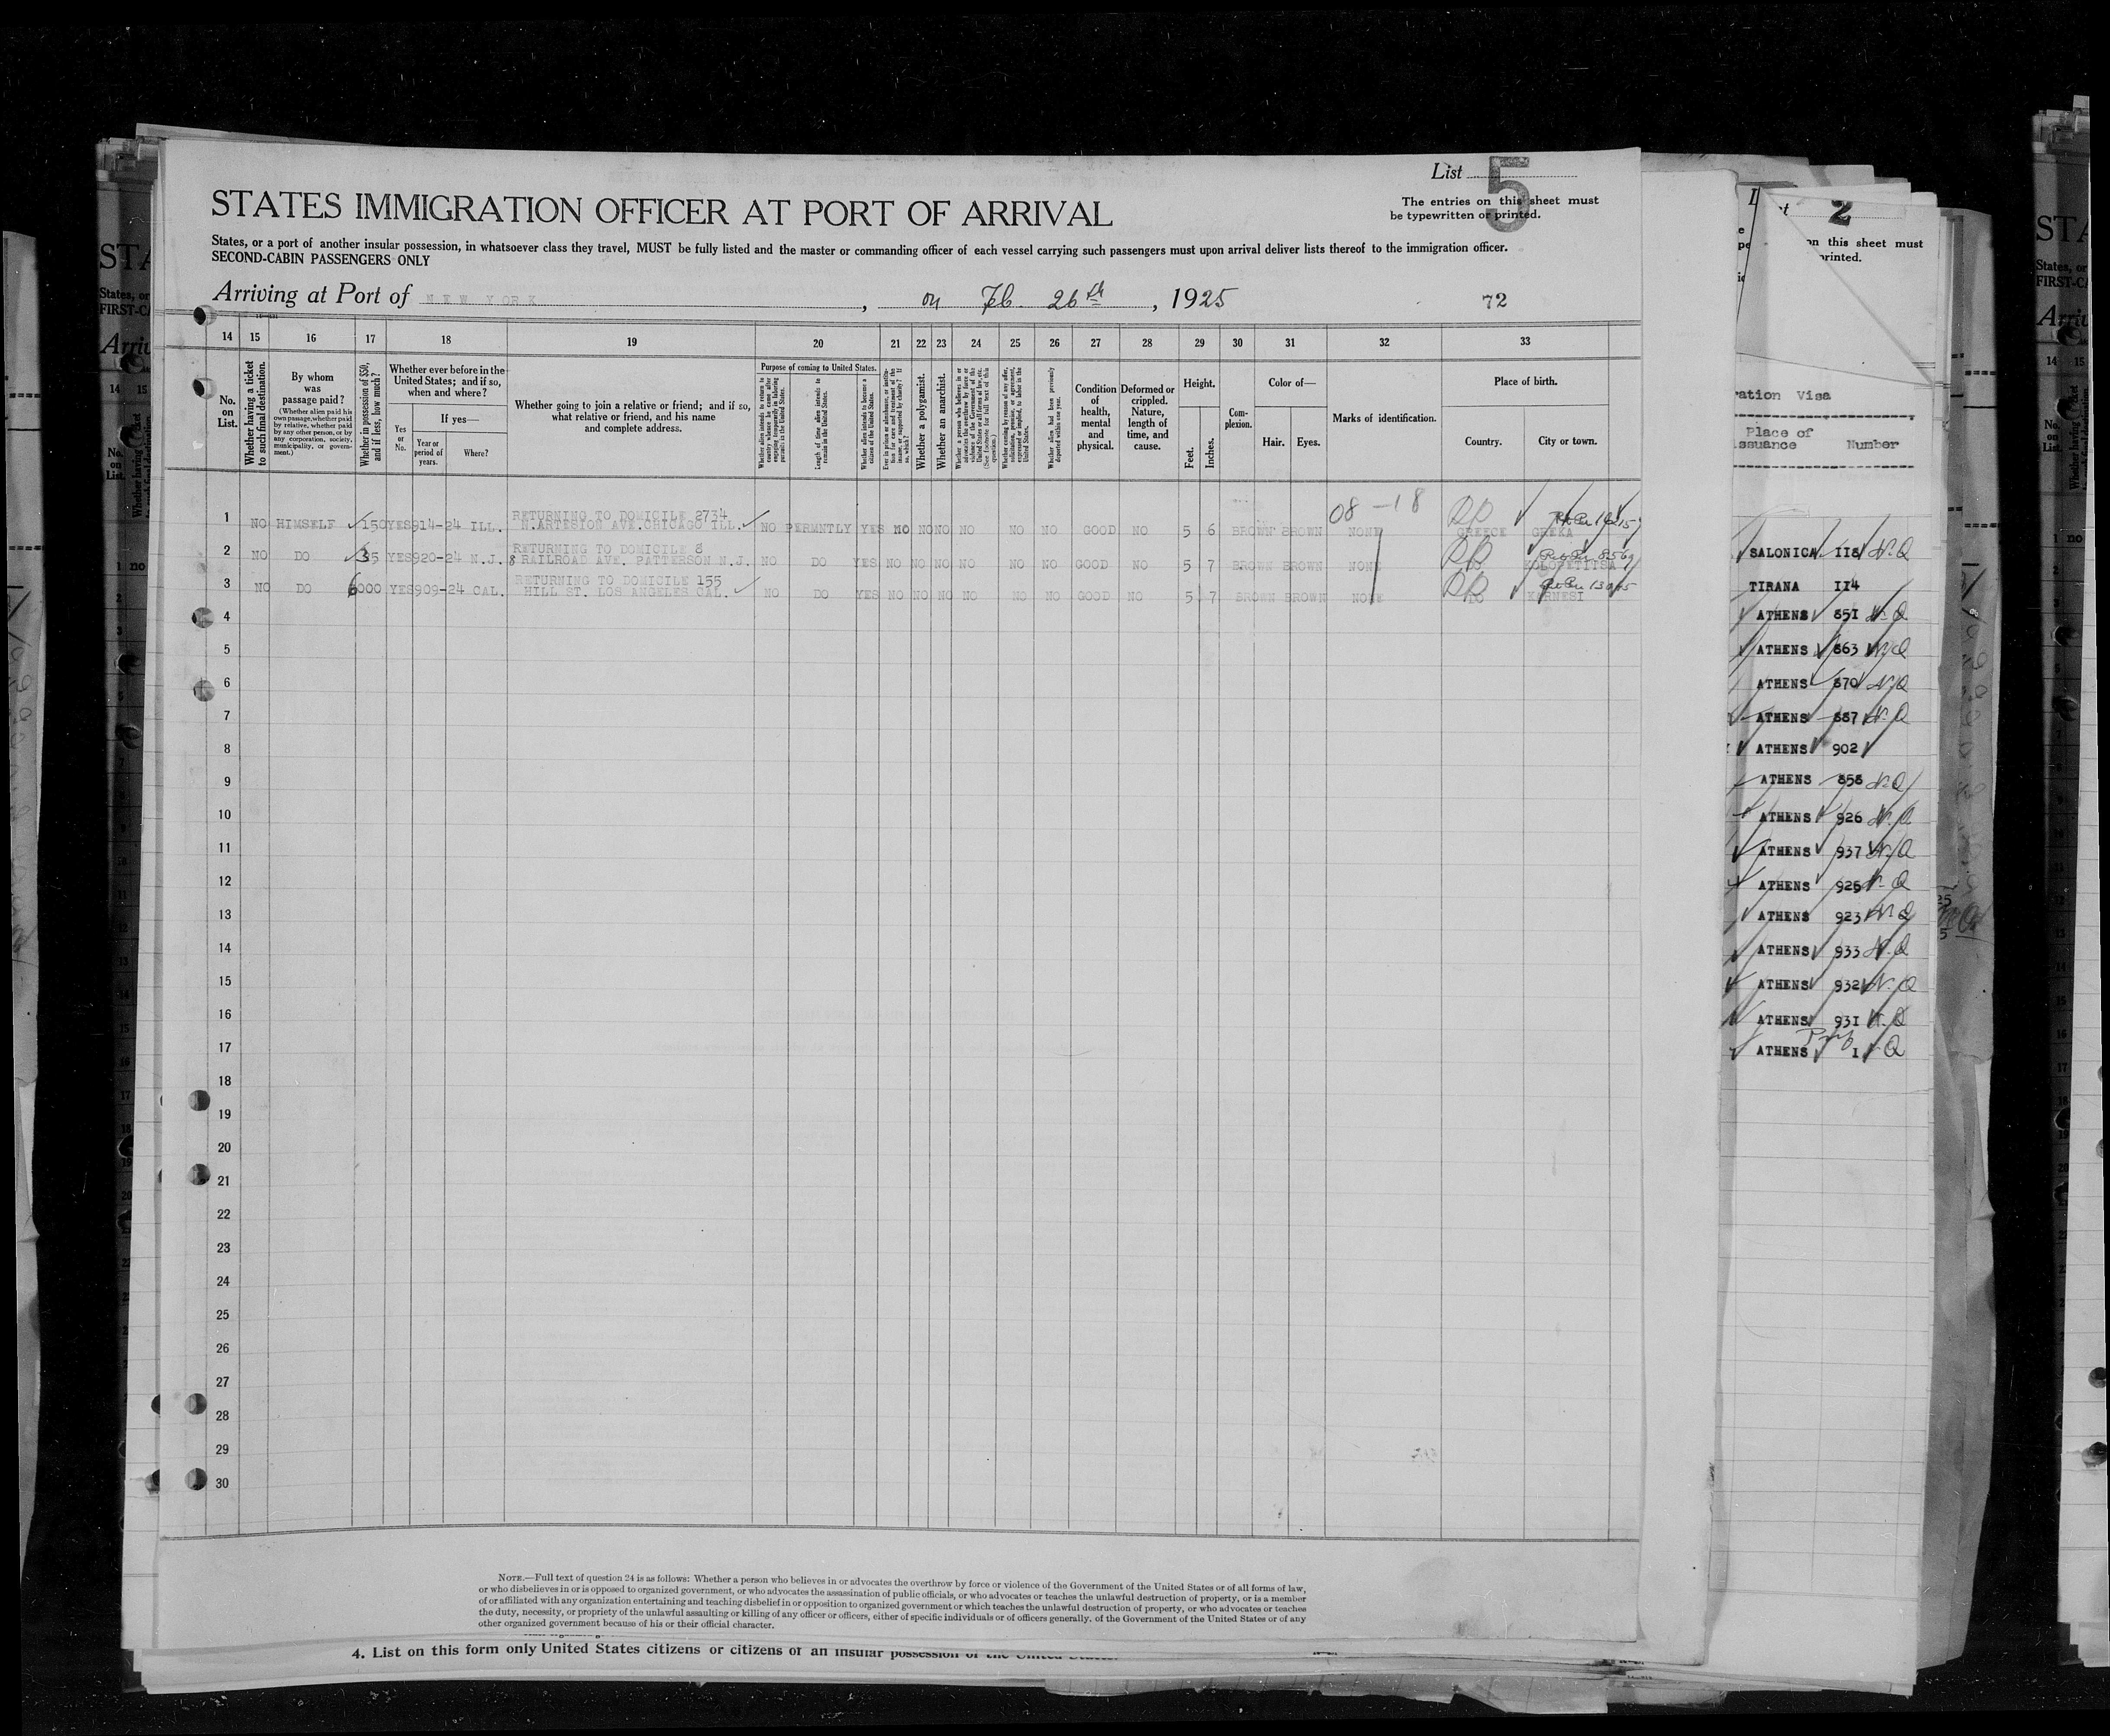 List 5
The entries on this sheet must
be typewritten or printed.
STATES IMMIGRATION OFFICER AT PORT OF ARRIVAL
States, or a port of another insular possession, in whatsoever class they travel, MUST be fully listed and the master or commanding officer of each vessel carrying such passengers must upon arrival deliver lists thereof to the immigration officer.
SECOND-CABIN PASSENGERS ONLY
Arriving at Port of NEW YORK, on Feb. 26th, 1925
72
14 15 16 17 18 19 20 21 22 23 24 25 26 27 28 29 30 31 32 33
No. on List.
Whether having a ticket to such final destination.
By whom was passage paid?
(Whether alien paid his own passage, whether paid by relative, whether paid by any other person, or by any corporation, society, municipality, or government.)
Whether in possession of $50, and if less, how much?
Whether ever before in the United States; and if so, when and where?
Yes or No.
If yes—
Year or period of years.
Where?
Whether going to join a relative or friend; and if so, what relative or friend, and his name and complete address.
Purpose of coming to United States.
Whether alien intends to return to country whence he came after engaging temporarily in laboring pursuits in the United States.
Length of time alien intends to remain in the United States.
Whether alien intends to become a citizen of the United States.
Whether a polygamist.
Whether an anarchist.
Condition of health, mental and physical.
Deformed or crippled. Nature, length of time, and cause.
Height.
Feet. Inches.
Complexion.
Color of—
Hair. Eyes.
Marks of identification.
Place of birth.
Country. City or town.
08 - 18
1 NO HIMSELF 150 YES 914-24 ILL. RETURNING TO DOMICILE 2734
N.ARTESION AVE.CHICAGO ILL. NO PERMNTLY YES NO NO NO NO NO NO GOOD NO 5 6 BROWN BROWN NONE GREECE GREKA
2 NO DO 35 YES 920-24 N.J. RETURNING TO DOMICILE 8
8 RAILROAD AVE. PATTERSON N.J. NO DO YES NO NO NO NO NO NO GOOD NO 5 7 BROWN BROWN NONE DO KOLOPETITSA
3 NO DO 6000 YES 909-24 CAL. RETURNING TO DOMICILE 155
HILL ST. LOS ANGELES CAL. NO DO YES NO NO NO NO NO NO GOOD NO 5 7 BROWN BROWN NONE DO KERMESI
4
5
6
7
8
9
10
11
12
13
14
15
16
17
18
19
20
21
22
23
24
25
26
27
28
29
30
NOTE.—Full text of question 24 is as follows: Whether a person who believes in or advocates the overthrow by force or violence of the Government of the United States or of all forms of law,
or who disbelieves in or is opposed to organized government, or who advocates the assassination of public officials, or who advocates or teaches the unlawful destruction of property, or is a member
of or affiliated with any organization entertaining and teaching disbelief in or opposition to organized government or which teaches the unlawful destruction of property, or who advocates or teaches
the duty, necessity, or propriety of the unlawful assaulting or killing of any officer or officers, either of specific individuals or of officers generally, of the Government of the United States or of any
other organized government because of his or their official character.
4. List on this form only United States citizens or citizens of an insular possession of the United States.
2
on this sheet must
printed.
ration Visa
Place of
ssuance Number
SALONICA 118 N.Q
TIRANA 114
ATHENS 851 N.Q
ATHENS 863 N.Q
ATHENS 870 N.Q
ATHENS 887 N.Q
ATHENS 902
ATHENS 858 N.Q
ATHENS 926 N.Q
ATHENS 937 N.Q
ATHENS 925 N.Q
ATHENS 923 N.Q
ATHENS 933 N.Q
ATHENS 932 N.Q
ATHENS 931 N.Q
ATHENS 1 Q